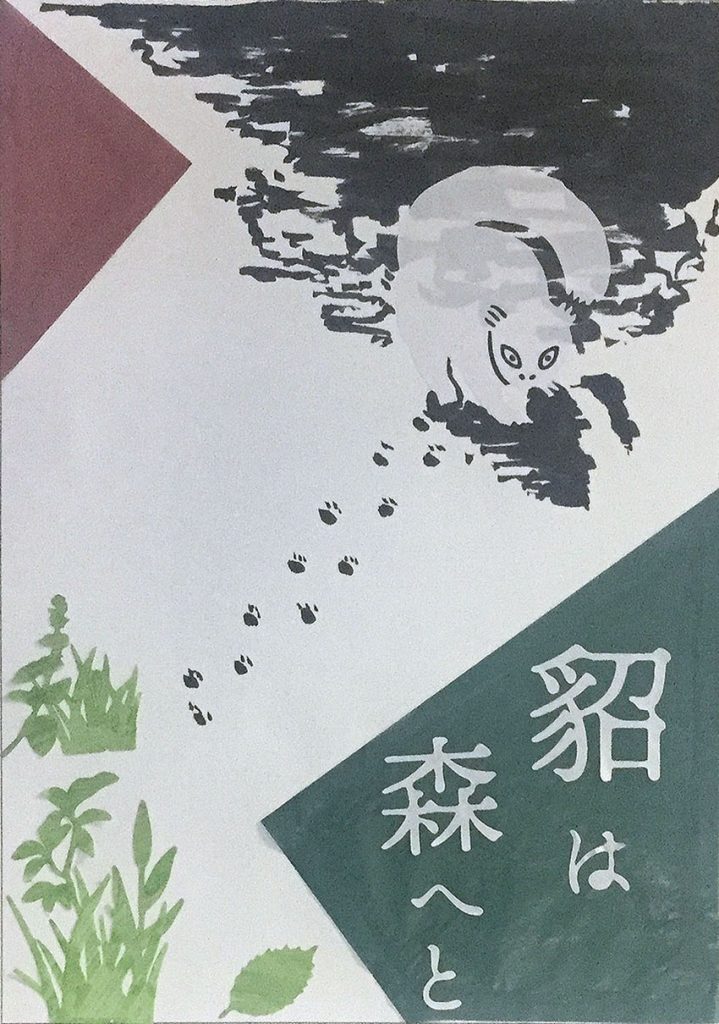 貂は
森へと